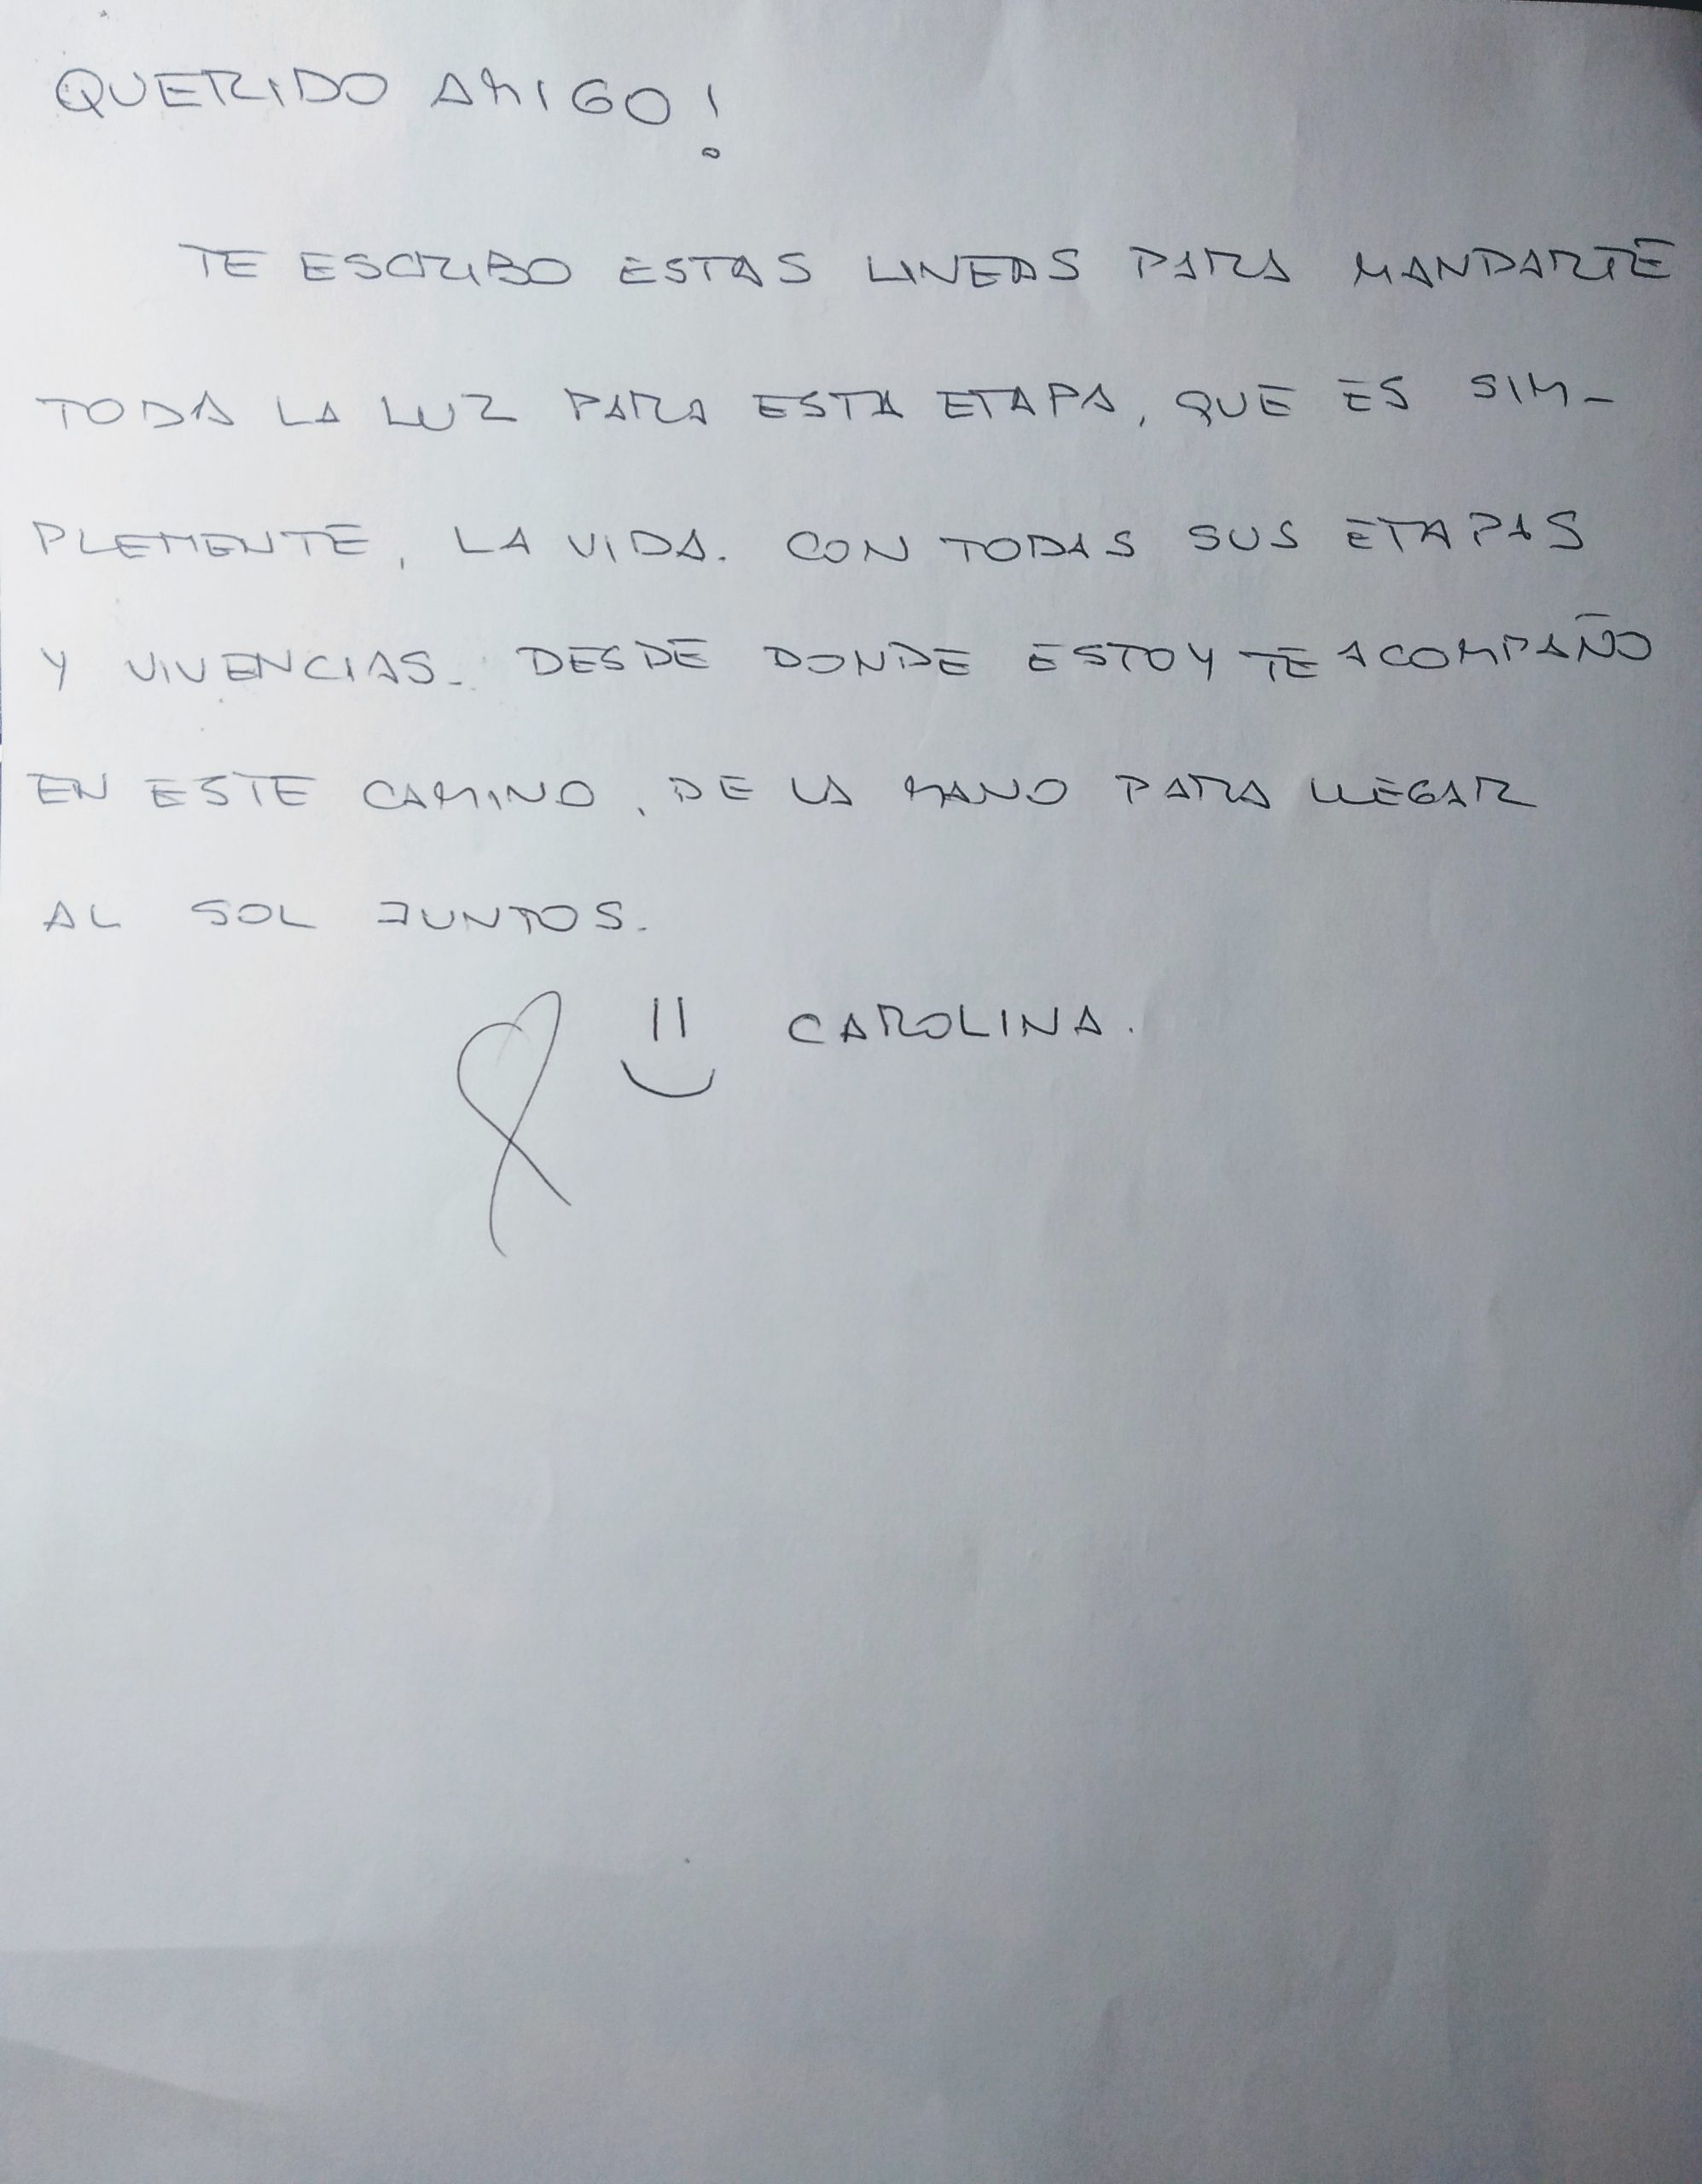 QUERIDO AMIGO!
TE ESCRIBO ESTAS LINEAS PARA MANDARTE
TODA LA LUZ PARA ESTA ETAPA, QUE ES SIM-
PLEMENTE, LA VIDA. CON TODAS SUS ETAPAS
Y VIVENCIAS. DESDE DONDE ESTOY TE ACOMPAÑO
EN ESTE CAMINO, DE LA MANO PARA LLEGAR
AL SOL JUNTOS.
CAROLINA.